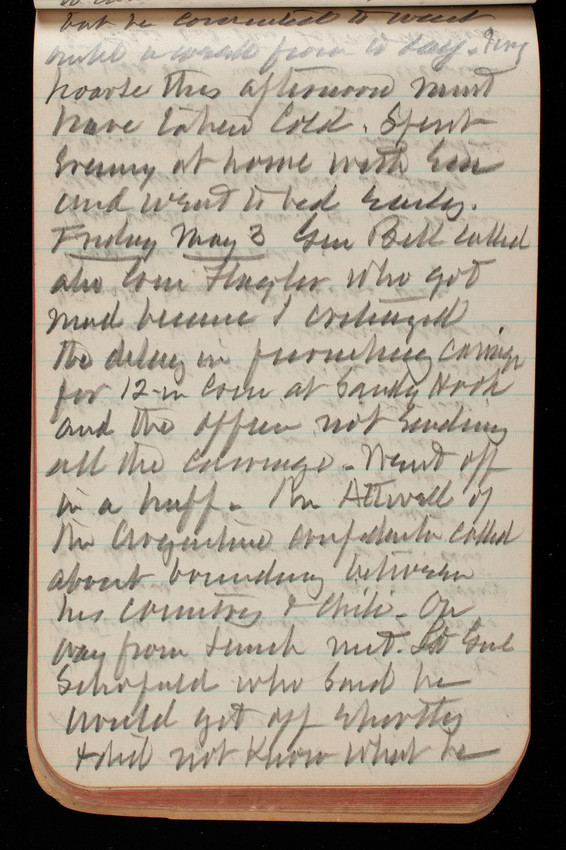 but he consented to wait
until a week from to day. Very
hoarse this afternoon must
have taken Cold. Spent
Evening at home with
and went to bed Early.
Friday May 3 Gen Bell called
also Com Flagler who got
mad because I criticized
the delay in furnishing Carriage
for 12-in Com at Sandy Hook
and the officer not sending
all the carriage. Went off
in a huff. Mr Attwell of
the Argentine called
about boundary between
his country & Chili. On
way from lunch met Lt Genl
Schofield who said he
would get off shortly
& did not know what he